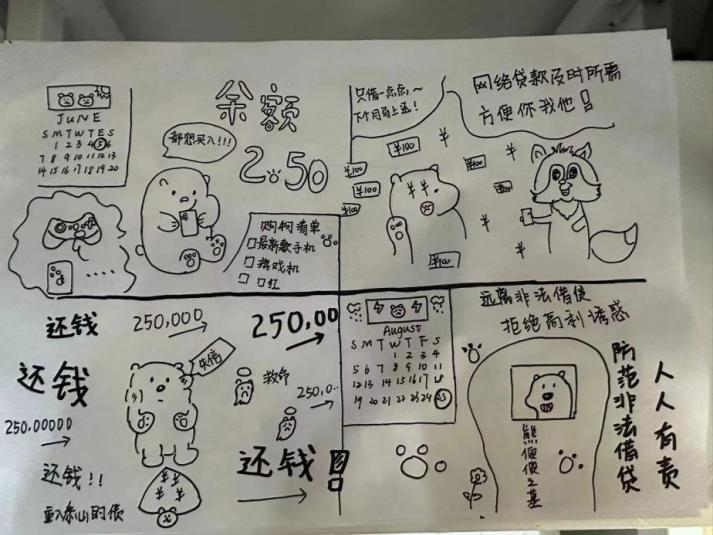 JUNE
S M T W T E S
1 2 3 4 5 6
7 8 9 10 11 12 13
14 15 16 17 18 19 20
余额
2.50
都想买入!!!
购物清单
最新款手机
游戏机
口红
......
只借一点点,~
下个月马上还!
网络贷款及时所需
方便你我他!
¥100
¥100
¥100
¥100
¥100
¥ ¥
¥
¥
¥
还钱
250,000
250,00
还钱
失信
救命
250,0..
250,00000
还钱!!
还钱
重入泰山的债
¥ ¥
¥
August
S M T W T F S
1 2 3 4
5 6 7 8 9 10 11
12 13 14 15 16 17 18
19 20 21 22 23 24 25
远离非法借贷
拒绝高利诱惑
防范非法借贷
人人有责
熊便便之墓